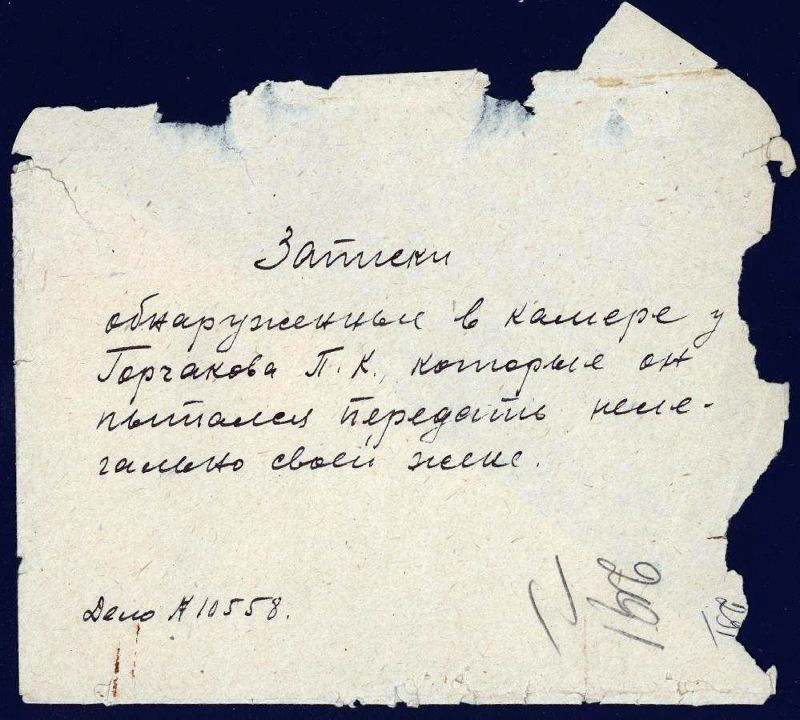 Записки
обнаруженные в камере у
Горчакова П. К., которые он
пытался передать неле-
гально своей жене.
Дело № 10558.
291
291